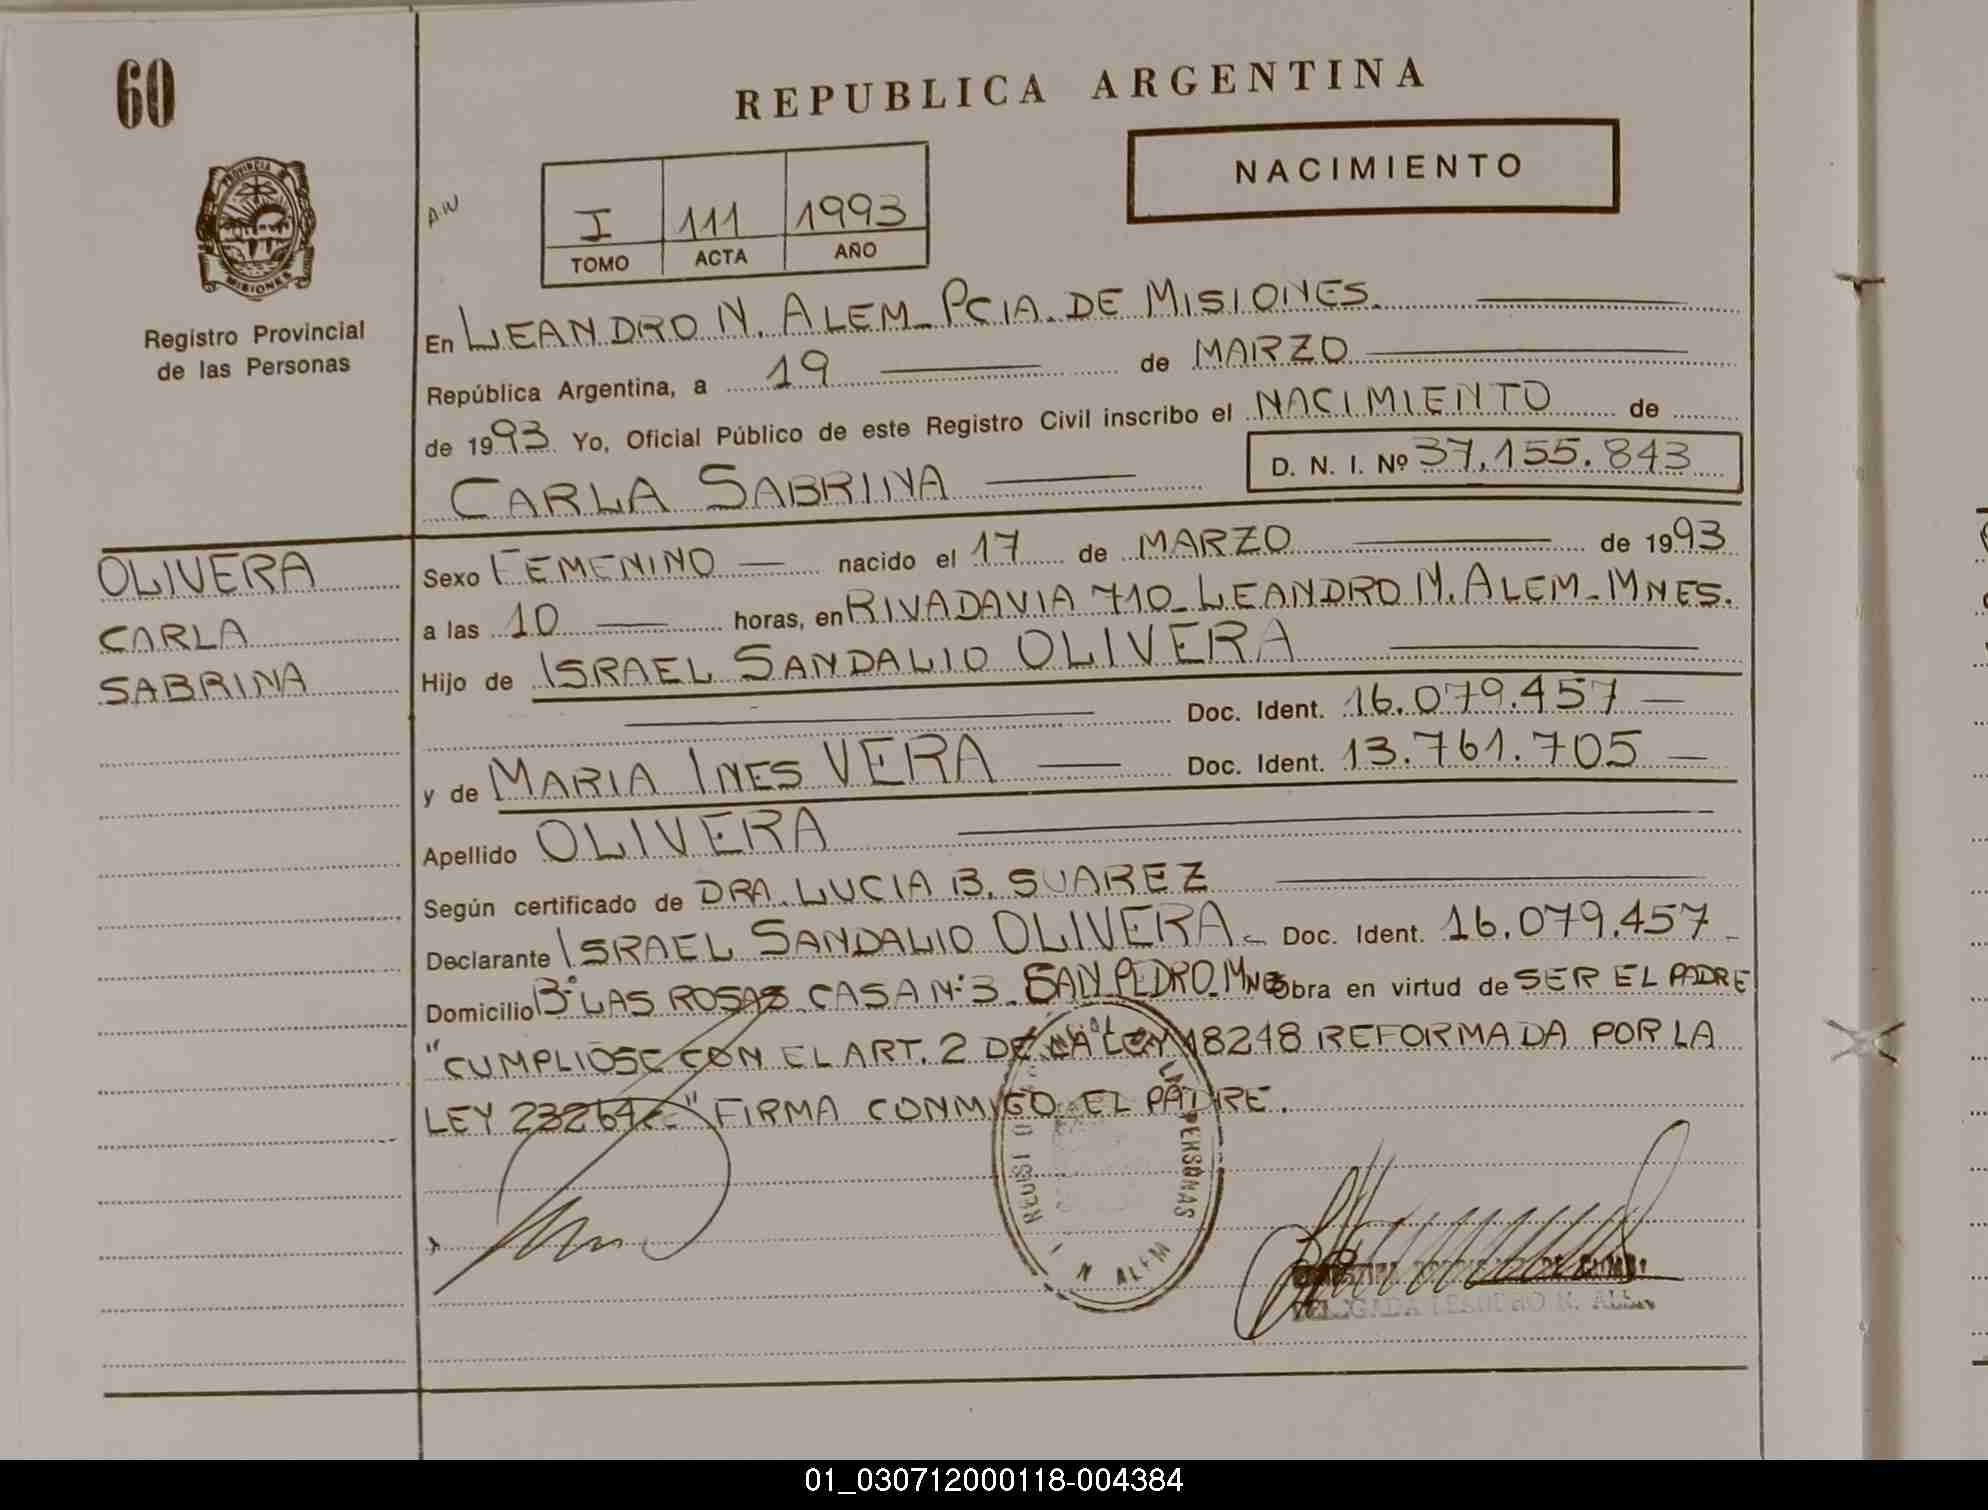 60
REPUBLICA ARGENTINA
NACIMIENTO
PROVINCIA DE
MISIONES
Registro Provincial
de las Personas
A.N
I 111 1993
TOMO ACTA AÑO
En LEANDRO N. ALEM_ PCIA. DE MISIONES.
República Argentina, a 19 de MARZO
de 1993. Yo, Oficial Público de este Registro Civil inscribo el NACIMIENTO de
CARLA SABRINA D. N. I. Nº 37.155.843
OLIVERA
CARLA
SABRINA
Sexo FEMENINO nacido el 17 de MARZO de 1993
a las 10 horas, en RIVADAVIA 710_ LEANDRO N. ALEM_ MNES.
Hijo de ISRAEL SANDALIO OLIVERA
Doc. Ident. 16.079.457
y de MARIA INES VERA Doc. Ident. 13.761.705
Apellido OLIVERA
Según certificado de DRA. LUCIA B. SUAREZ
Declarante ISRAEL SANDALIO OLIVERA_ Doc. Ident. 16.079.457
Domicilio Bº LAS ROSAS_ CASA Nº 3_ SAN PEDRO_ MNES Obra en virtud de SER EL PADRE
"CUMPLIOSE CON EL ART. 2 DE LA LEY 18248 REFORMADA POR LA
LEY 23264_" FIRMA CONMIGO EL PADRE.
PERSONAS
N ALEM
DELEGADA LEANDRO N. ALEM
01_030712000118-004384